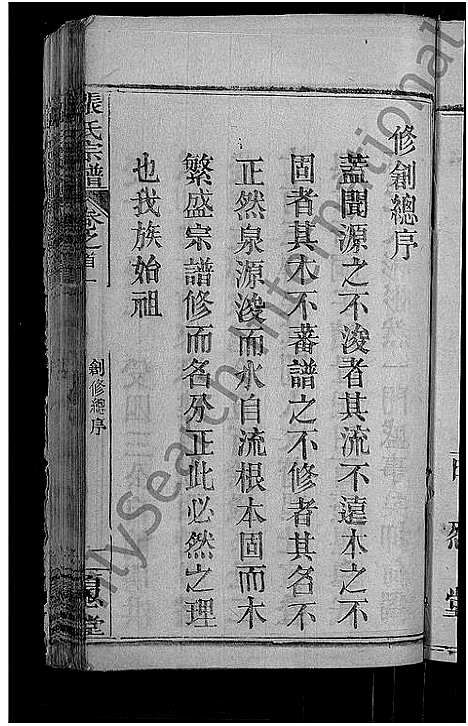 修創總序
蓋聞源之不浚者其流不遠本之不
固者其木不蕃譜之不修者其名不
正然泉源浚而水自流根本固而木
繁盛宗譜修而名分正此必然之理
也我族始祖
張氏宗譜
卷之首
創修總序
堂
堂
FamilySearch International